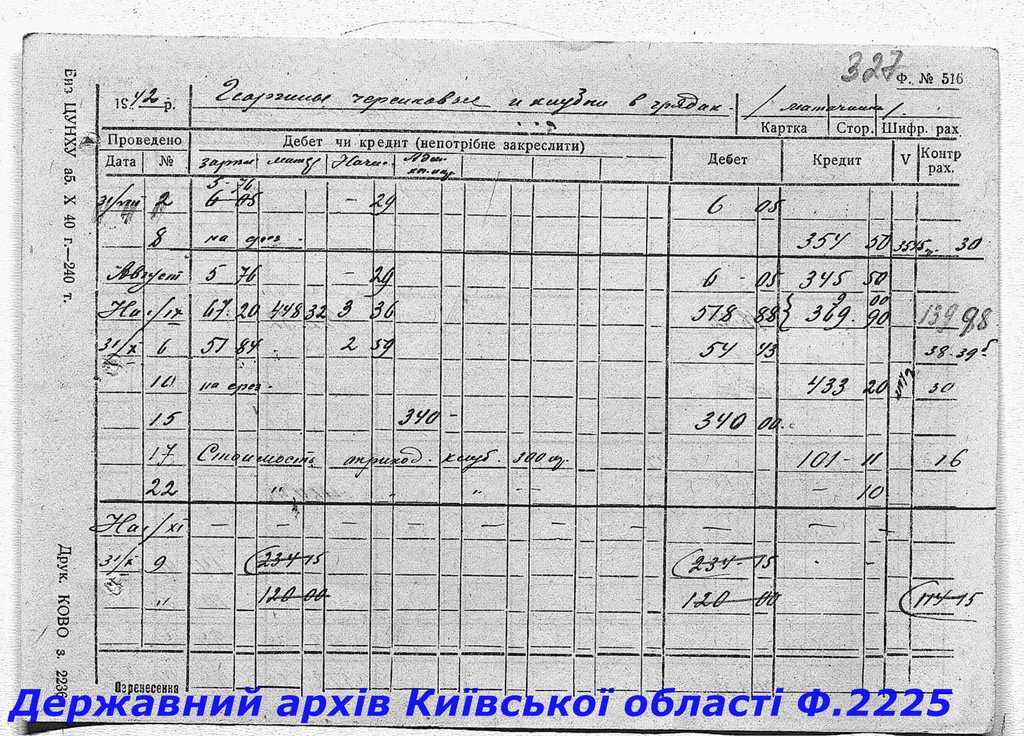 327 Ф. № 516
1942 р. Георгины черенковые и клубни в грядах. / маточники /.
Картка Стор. Шифр. рах.
Проведено Дебет чи кредит (непотрібне закреслити) Дебет Кредит V Контр рах.
Дата № зарпл матер Начис.
5-76
31/VIII 2 6 05 - 29 6 05
8 на срез. 354 50 30
Август 5 76 - 29 6 - 05 345 50
9 00
На 1/IX 67.20 448 32 3 36 518 88 369.90 139 98
31/X 6 51 84 2 59 54 43 38.39
10 на срез. 433 20 30
15 340 - 340 00
17 Стоимость оприход. клуб. 300 шт. 101 - 11 16
22 " " " - - - 10
На 1/XI - - - - - - - - - -
31/X 9 234-15 234-15
" 120-00 120-00 114-15
Перенесення
Биз ЦУНХУ аб. X 40 г.—240 т.
Друк. КОВО з. 2236
Державний архів Київської області Ф.2225